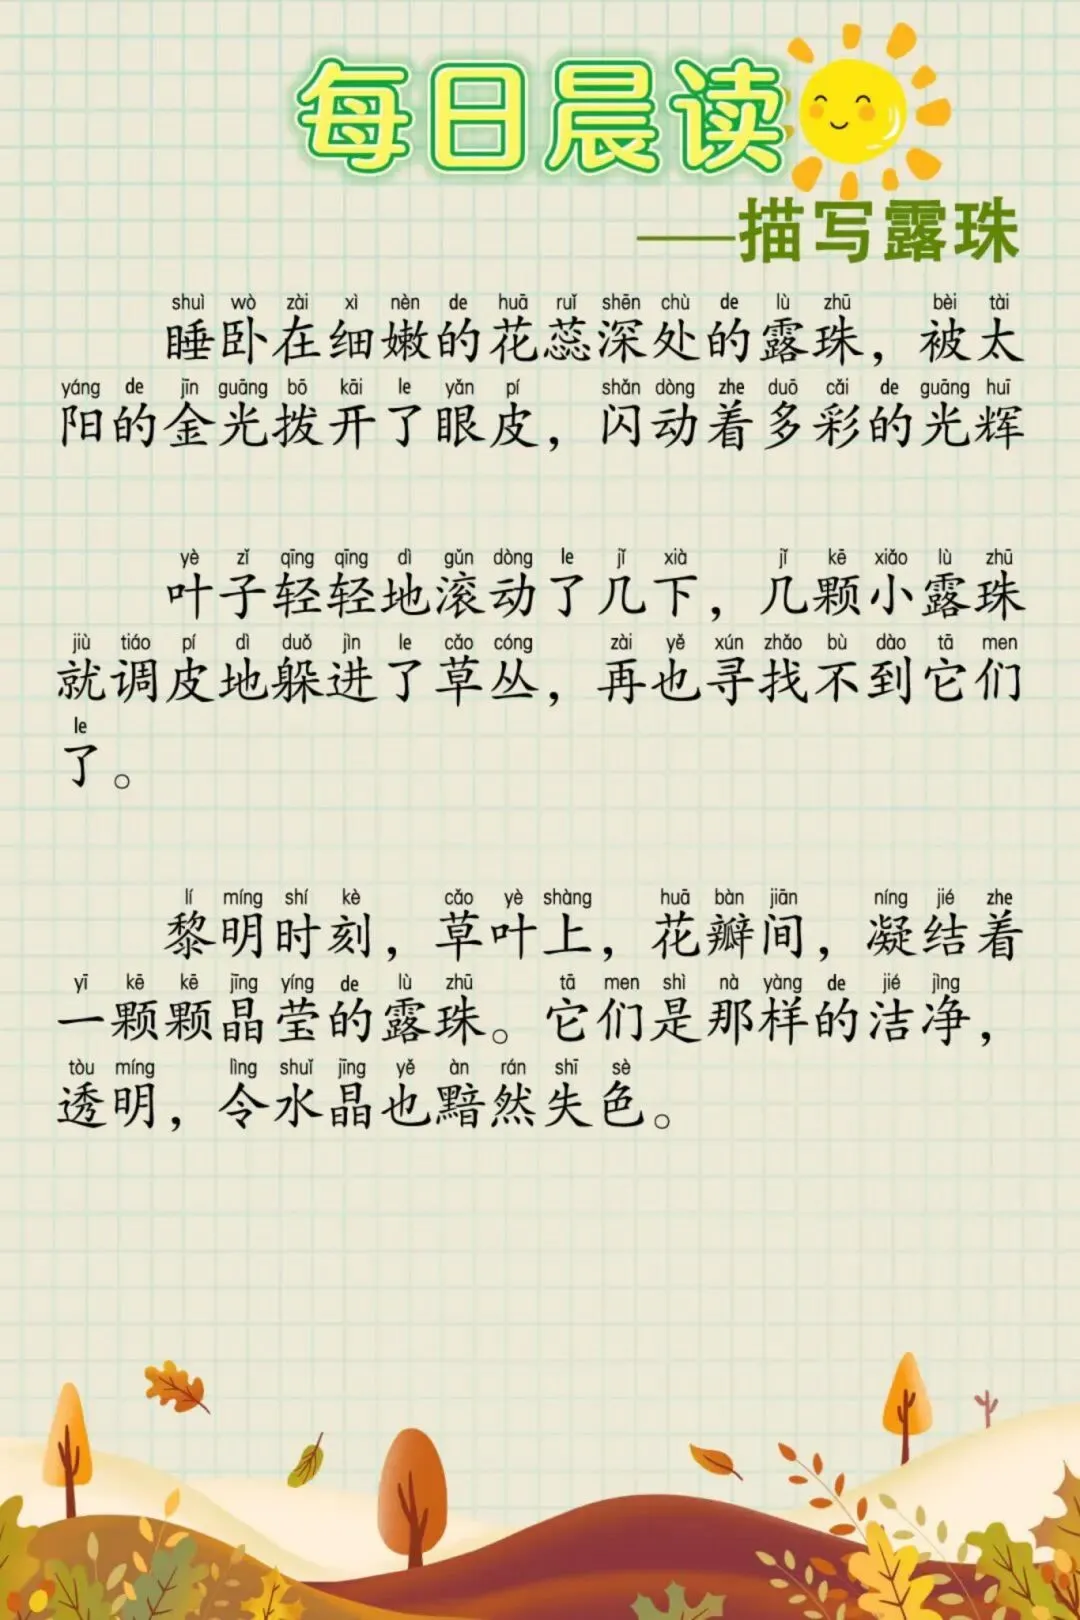 每日晨读
——描写露珠
shuì wò zài xì nèn de huā ruǐ shēn chù de lù zhū bèi tài
睡卧在细嫩的花蕊深处的露珠，被太
yáng de jīn guāng bō kāi le yǎn pí shǎn dòng zhe duō cǎi de guāng huī
阳的金光拨开了眼皮，闪动着多彩的光辉
yè zǐ qīng qīng dì gǔn dòng le jǐ xià jǐ kē xiǎo lù zhū
叶子轻轻地滚动了几下，几颗小露珠
jiù tiáo pí dì duǒ jìn le cǎo cóng zài yě xún zhǎo bù dào tā men
就调皮地躲进了草丛，再也寻找不到它们
le
了。
lí míng shí kè cǎo yè shàng huā bàn jiān níng jié zhe
黎明时刻，草叶上，花瓣间，凝结着
yī kē kē jīng yíng de lù zhū tā men shì nà yàng de jié jìng
一颗颗晶莹的露珠。它们是那样的洁净，
tòu míng lìng shuǐ jīng yě àn rán shī sè
透明，令水晶也黯然失色。